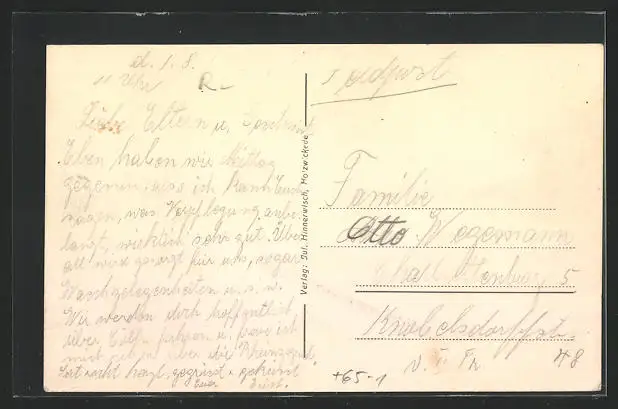 d. 1. 8.
11 Uhr
R-
Liebe Eltern u. Geschwist.
Eben haben wir Mittag
gegessen, was ich kann Euch
sagen, was Verpflegung anbe
langt, wirklich sehr gut. Über
all wird gesorgt für uns, sogar
Waschgelegenheiten u. s. w.
Wir werden doch hoffentlich
über Köln fahren u.
die Rheingegend
herzl. gegrüsst u. geküsst
Euer
Verlag: Jul. Hinnerwisch, Holzwickede
Feldpost
Familie
Otto Wegemann
5
Knobelsdorffstr.
48
+65-1